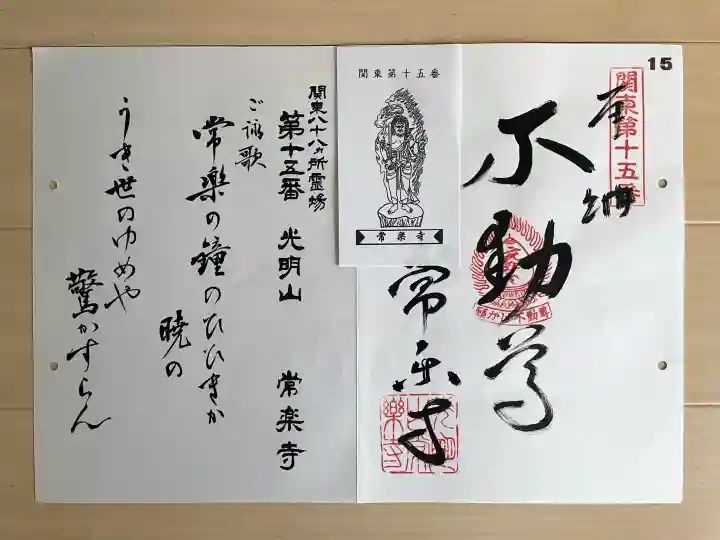 15
関東第十五番
奉納
不動尊
常楽寺
関東第十五番
常楽寺
関東八十八ヵ所霊場
第十五番 光明山 常楽寺
ご詠歌
常楽の鐘のひゞきか
暁の
うき世のゆめや
驚かすらん